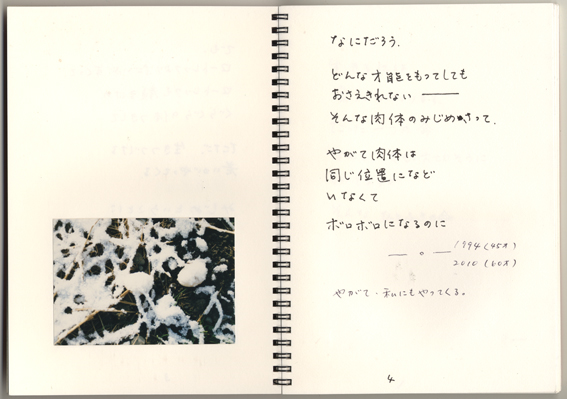 なにだろう.
どんな才能をもってしても
おさえきれない ——
そんな肉体のみじめさって.
やがて肉体は
同じ位置になど
いなくて
ボロボロになるのに
— 。— 1994 (45才)
2010 (60才)
やがて・私にもやってくる。
4